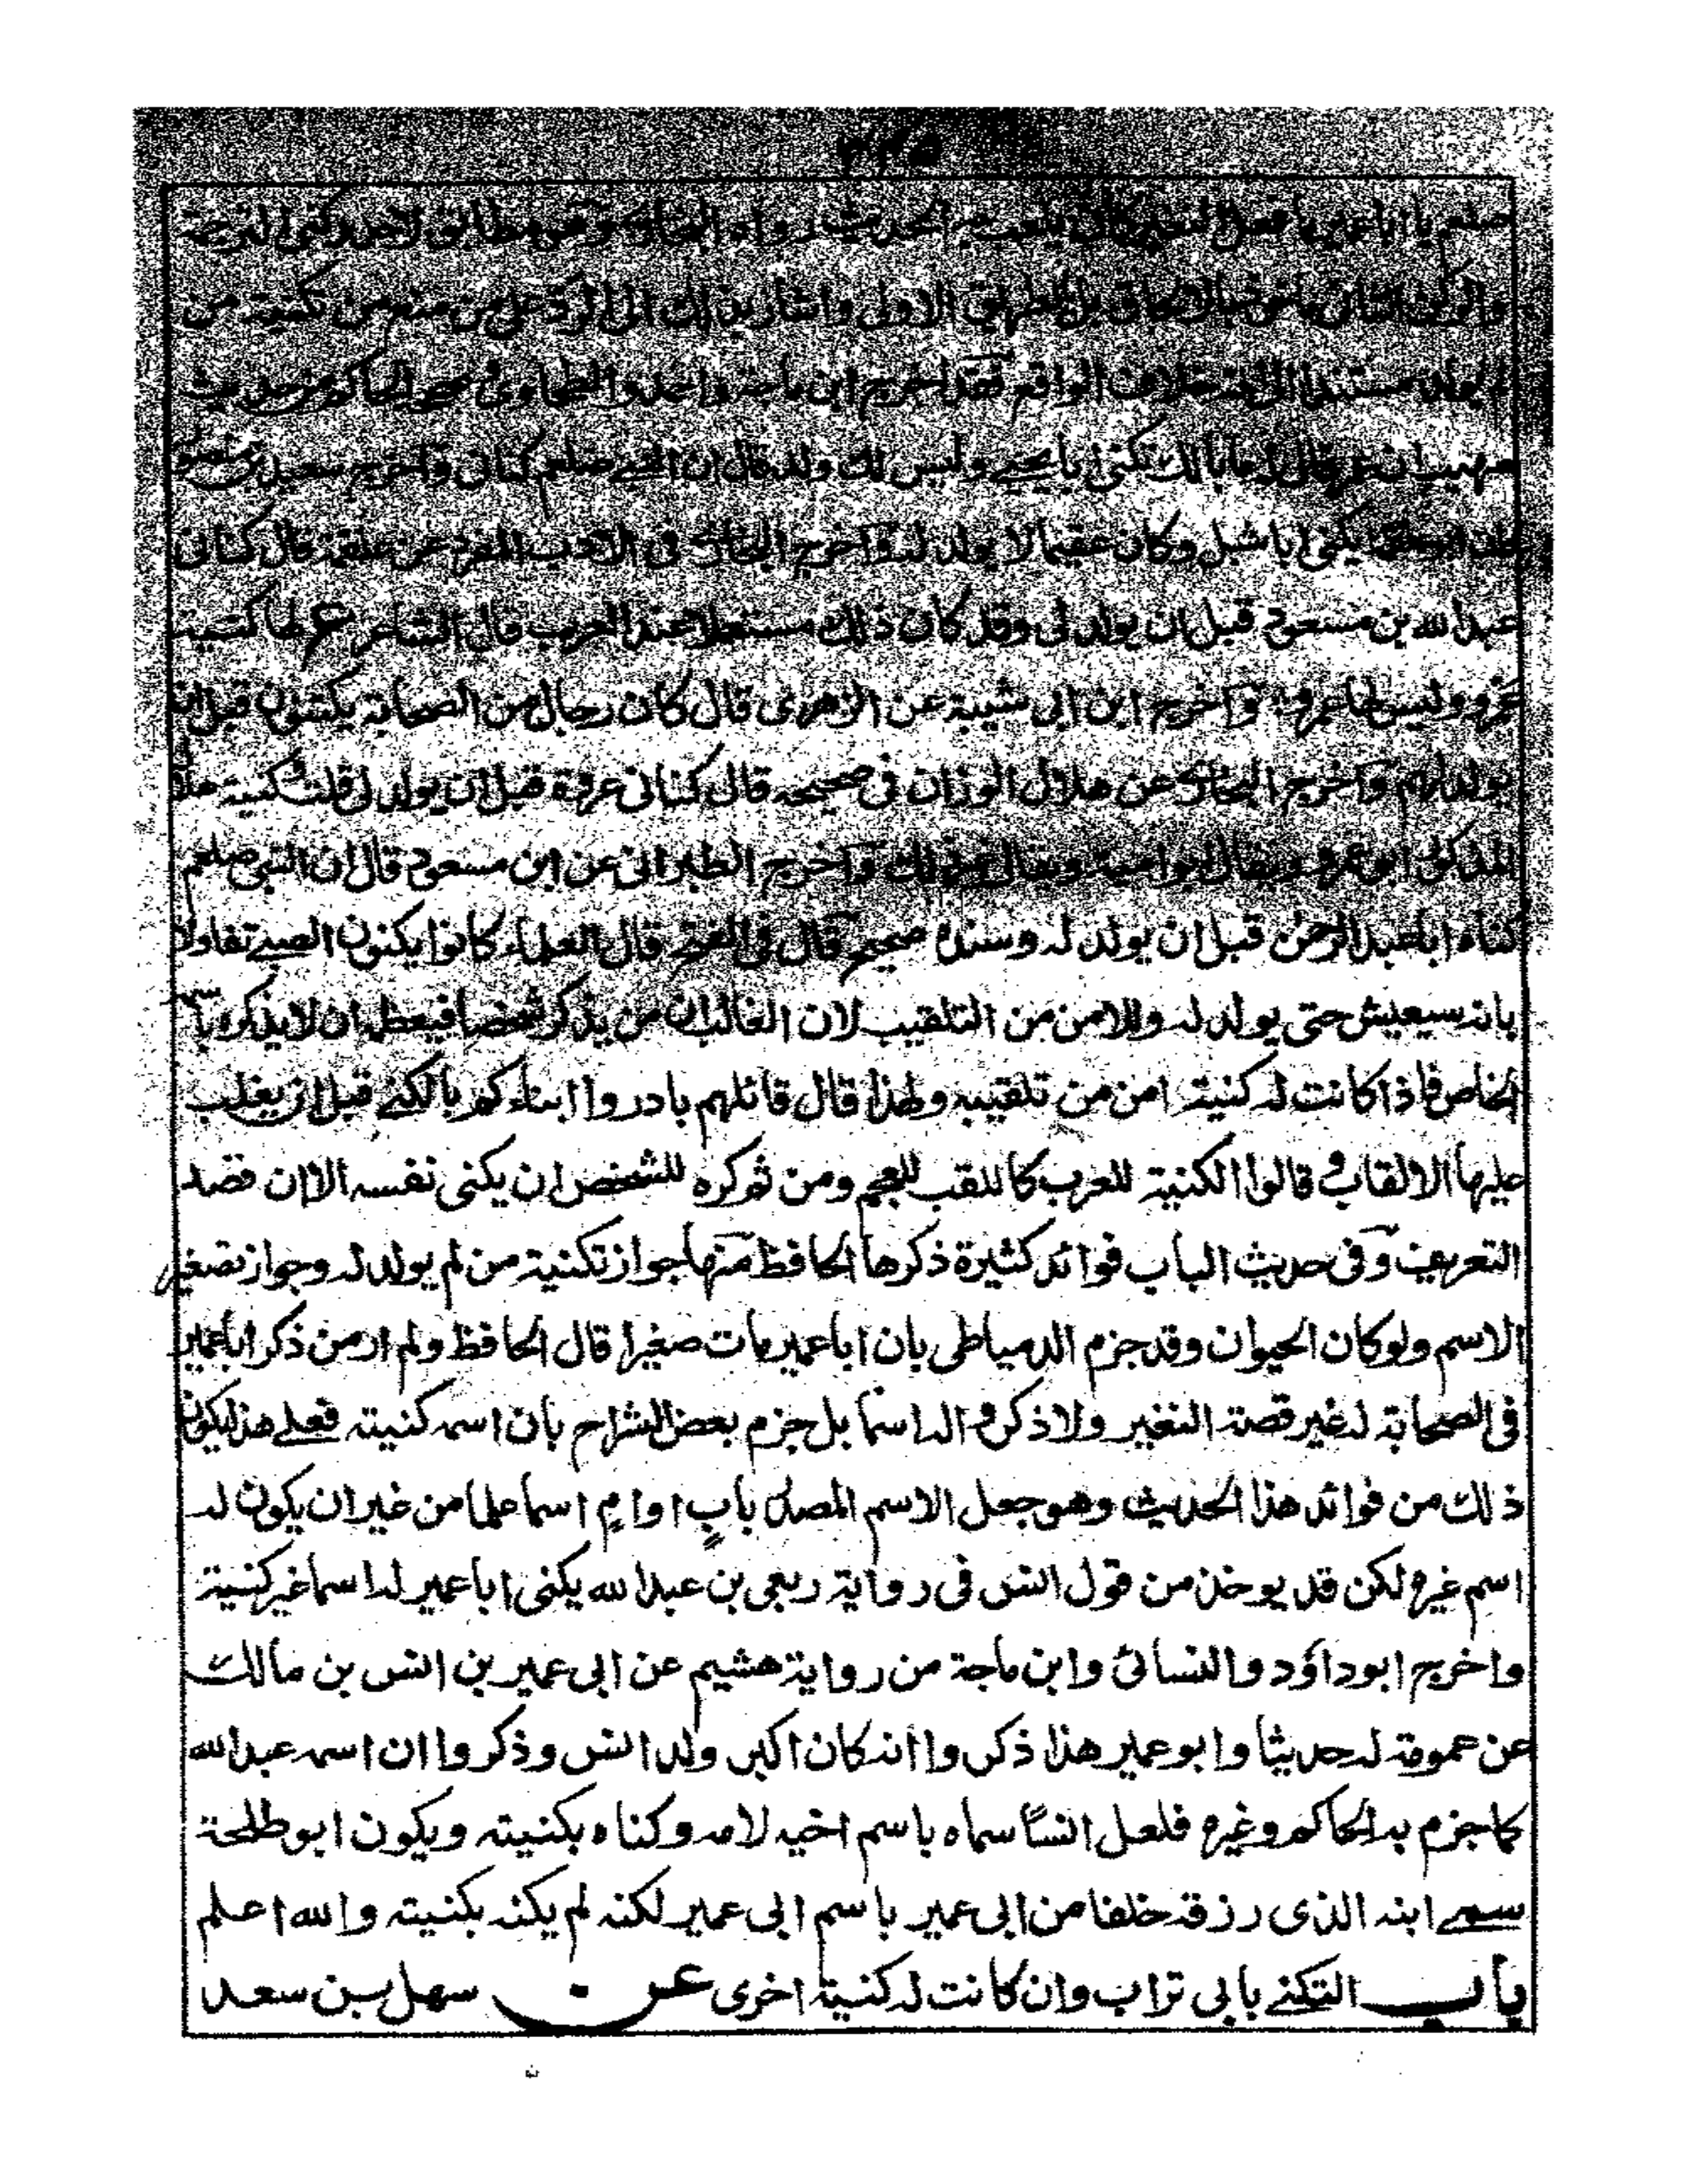 صلعم يا ابا عمير ما فعل النغير كان يلعب به الحديث رواه البخاري وهو مطابق لاحد ركني الترجمة
والركن الثاني ماخوذ بالالحاق بل بطريق الاولى واشار بذلك الى الرد على من منع من تكنية من
لم يولد له مستندا الى انه خلاف الواقع فقد اخرج ابن ماجة واحمد والطحاوي وصححه الحاكم من حديث
صهيب ان عمر قال له مالك تكنى ابا يحيى وليس لك ولد قال ان النبي صلعم كناني واخرج سعيد بن منصور
يكنى ابا شبل وكان عقيما لا يولد له واخرج البخاري في الادب المفرد عن علقمة قال كناني
عبد الله بن مسعود قبل ان يولد لي وقد كان ذلك مستعملا عند العرب قال الشاعر ع لها كنية
عمرو وليس لها عمرو واخرج ابن ابي شيبة عن الزهري قال كان رجال من الصحابة يكتنون قبل ان
يولد لهم واخرج البخاري عن هلال الوزان في صحيحه قال كناني عروة قبل ان يولد لي قلت كنية هلال
المذكور ابو عمرو ويقال ابو امية ويقال غير ذلك واخرج الطبراني عن ابن مسعود قال ان النبي صلعم
كناه ابا عبد الرحمن قبل ان يولد له وسنده صحيح قال في الفتح قال العلماء كانوا يكنون الصبي تفاولا
بانه سيعيش حتى يولد له وللامن من التلقيب لان الغالب ان من يذكر شخصا فيعظمه ان لا يذكره باسمه
الخاص فاذا كانت له كنية امن من تلقيبه ولهذا قال قائلهم بادروا ابناءكم بالكنى قبل ان يغلب
عليها الالقاب وقالوا الكنية للعرب كاللقب للعجم ومن ثم كره للشخص ان يكنى نفسه الا ان قصد
التعريف وفي حديث الباب فوائد كثيرة ذكرها الحافظ منها جواز تكنية من لم يولد له وجواز تصغير
الاسم ولو كان الحيوان وقد جزم الدمياطي بان ابا عمير مات صغيرا قال الحافظ ولم ار من ذكر ابا عمير
في الصحابة له غير قصة النغير ولا ذكروا له اسما بل جزم بعض الشراح بان اسمه كنيته فعلى هذا يكون
ذلك من فوائد هذا الحديث وهو جعل الاسم المصدر باب او ام اسما علما من غير ان يكون له
اسم غيره لكن قد يوخذ من قول انس في رواية ربعي بن عبد الله يكنى ابا عمير له اسما غير كنية
واخرج ابو داؤد والنسائي وابن ماجة من رواية هشيم عن ابي عمير بن انس بن مالك
عن عمومة له حديثا وابو عمير هذا ذكروا انه كان اكبر ولد انس وذكروا ان اسمه عبد الله
كما جزم به الحاكم وغيره فلعل انسا سماه باسم اخيه لامه وكناه بكنيته ويكون ابو طلحة
سمى ابنه الذي رزقه خلفا من ابي عمير باسم ابي عمير لكنه لم يكنه بكنيته والله اعلم
باب التكني بابي تراب وان كانت له كنية اخرى عن سهل بن سعد